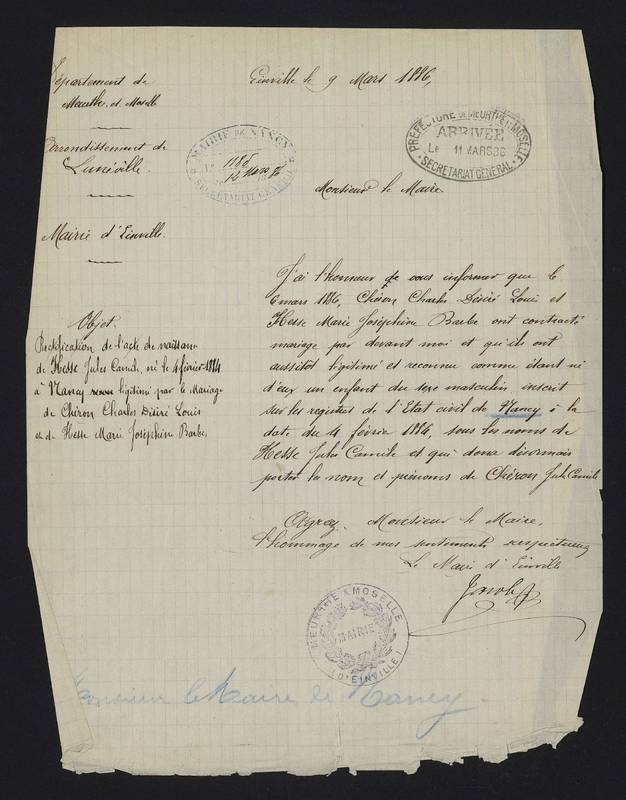 Département de
Meurthe-et-Moselle
Arrondissement de
Lunéville.
Mairie d'Einville.
Einville le 9 Mars 1886,
MAIRIE DE NANCY
1181
12 Mars 86
SECRÉTARIAT GÉNÉRAL
PRÉFECTURE DE MEURTHE-ET-MOSELLE
ARRIVÉE
Le 11 MARS 86
SECRÉTARIAT GÉNÉRAL
Monsieur le Maire
Objet.
Rectification de l'acte de naissance
de Hesse Jules Camile, né le 4 février 1884
à Nancy légitimé par le Mariage
de Chéron Charles Désiré Louis
et de Hesse Marie Joséphine Barbe.
J'ai l'honneur de vous informer que le
6 mars 1886, Chéron Charles Désiré Louis et
Hesse Marie Joséphine Barbe ont contracté
mariage par devant moi et qu'ils ont
aussitot légitimé et reconnu comme étant né
d'eux un enfant du sexe masculin inscrit
sur les registres de l'Etat civil de Nancy à la
date du 4 février 1886, sous les noms de
Hesse Jules Camile et qui devra désormais
porter les nom et prénoms de Chéron Jules Camile
Agréez, Monsieur le Maire,
l'hommage de mes sentiments respectueux
Le Maire d'Einville
MEURTHE & MOSELLE
MAIRIE
D'EINVILLE
Monsieur le Maire de Nancy.